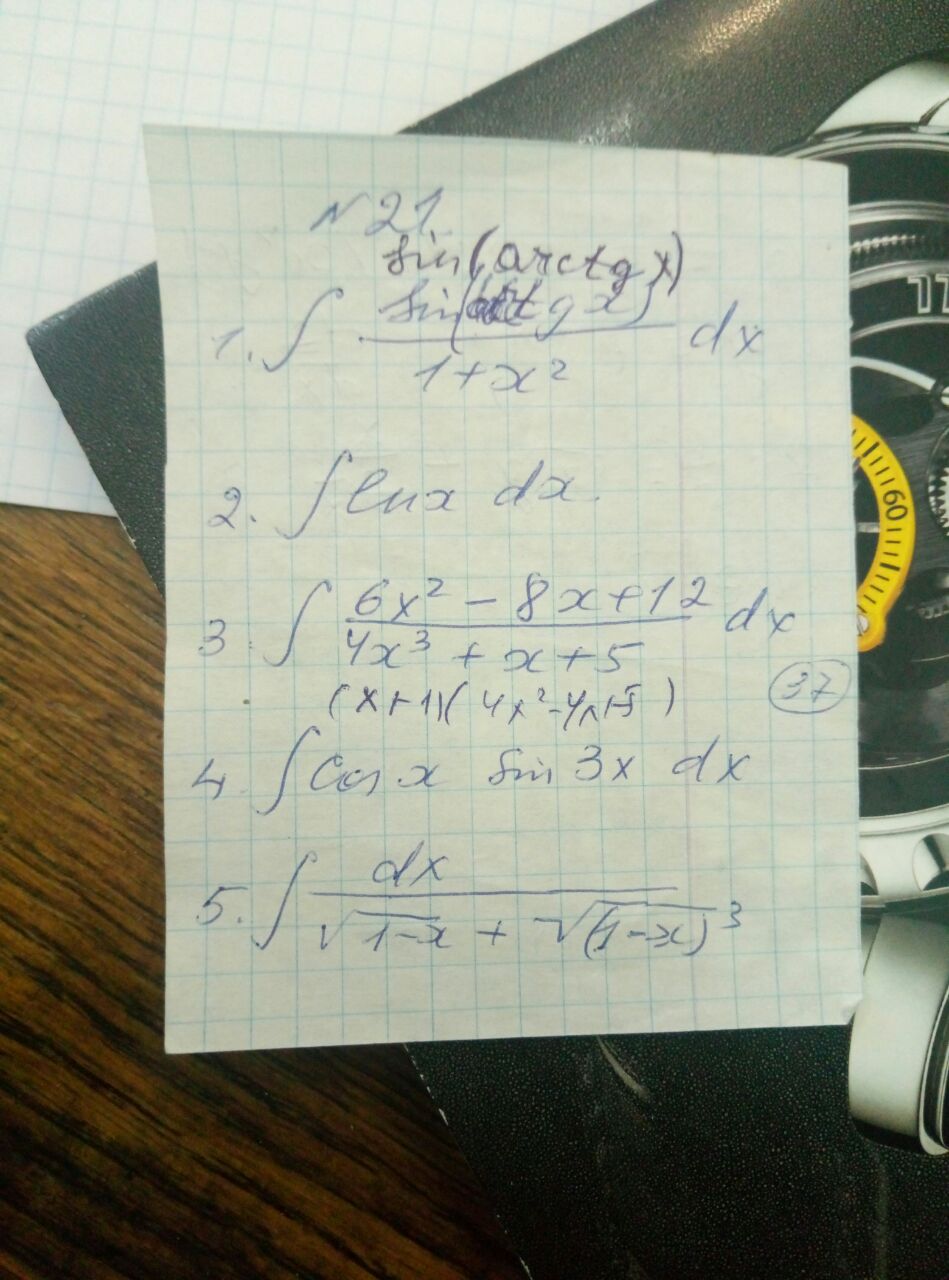 N 21
sin(arctg x)
1. ∫ sin(tg x) / 1+x² dx
2. ∫ ln x dx.
3. ∫ 6x² - 8x+12 / 4x³ + x+5 dx
(x+1)(4x²-4x+5)
37
4. ∫ Cos x Sin 3x dx
5. ∫ dx / √1-x + √(1-x)³
17
60